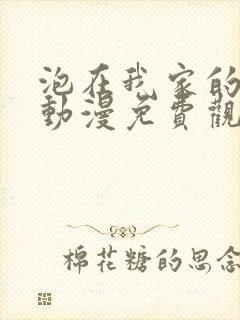 泡在我家的
動漫免費觀
棉花糖的思念